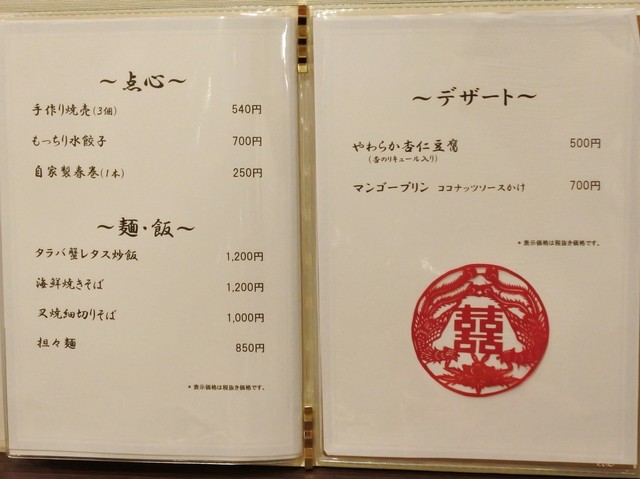 ～点心～
手作り焼売(3個) 540円
もっちり水餃子 700円
自家製春巻(1本) 250円
～麺・飯～
タラバ蟹レタス炒飯 1,200円
海鮮焼きそば 1,200円
叉焼細切りそば 1,000円
担々麺 850円
* 表示価格は税抜き価格です。
～デザート～
やわらか杏仁豆腐 500円
(杏のリキュール入り)
マンゴープリン ココナッツソースかけ 700円
* 表示価格は税抜き価格です。
囍